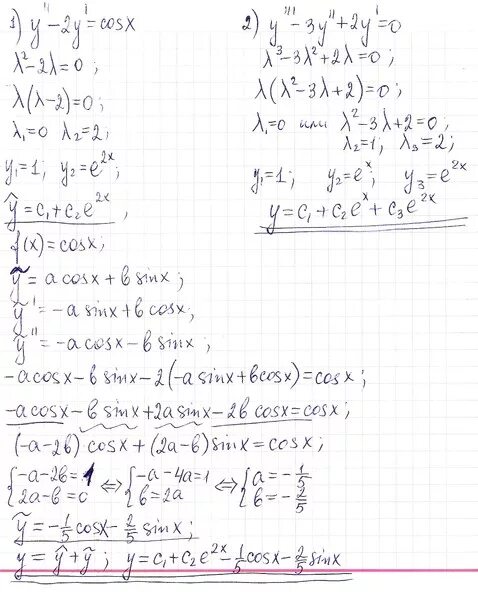 1) y'' - 2y' = cosx
λ² - 2λ = 0 ;
λ(λ-2) = 0 ;
λ₁=0 λ₂=2 ;
y₁=1 ; y₂=e^{2x} ;
ŷ = c₁ + c₂e^{2x} ,
f(x) = cosx ;
ỹ = a cosx + b sinx ;
ỹ' = -a sinx + b cosx ;
ỹ'' = -a cosx - b sinx ;
-a cosx - b sinx - 2(-a sinx + b cosx) = cosx ;
-a cosx - b sinx + 2a sinx - 2b cosx = cosx ;
(-a-2b) cosx + (2a-b) sinx = cosx ;
{-a-2b=1 ⇔ {-a-4a=1 ⇔ {a=-1/5
{2a-b=0 {b=2a {b=-2/5
ỹ = -1/5 cosx - 2/5 sinx ;
y = ŷ + ỹ ; y = c₁ + c₂e^{2x} - 1/5 cosx - 2/5 sinx
2) y''' - 3y'' + 2y' = 0
λ³ - 3λ² + 2λ = 0 ;
λ(λ² - 3λ + 2) = 0 ;
λ₁=0 или λ² - 3λ + 2 = 0 ;
λ₂=1 ; λ₃=2 ;
y₁=1 ; y₂=e^x ; y₃=e^{2x}
y = c₁ + c₂e^x + c₃e^{2x}